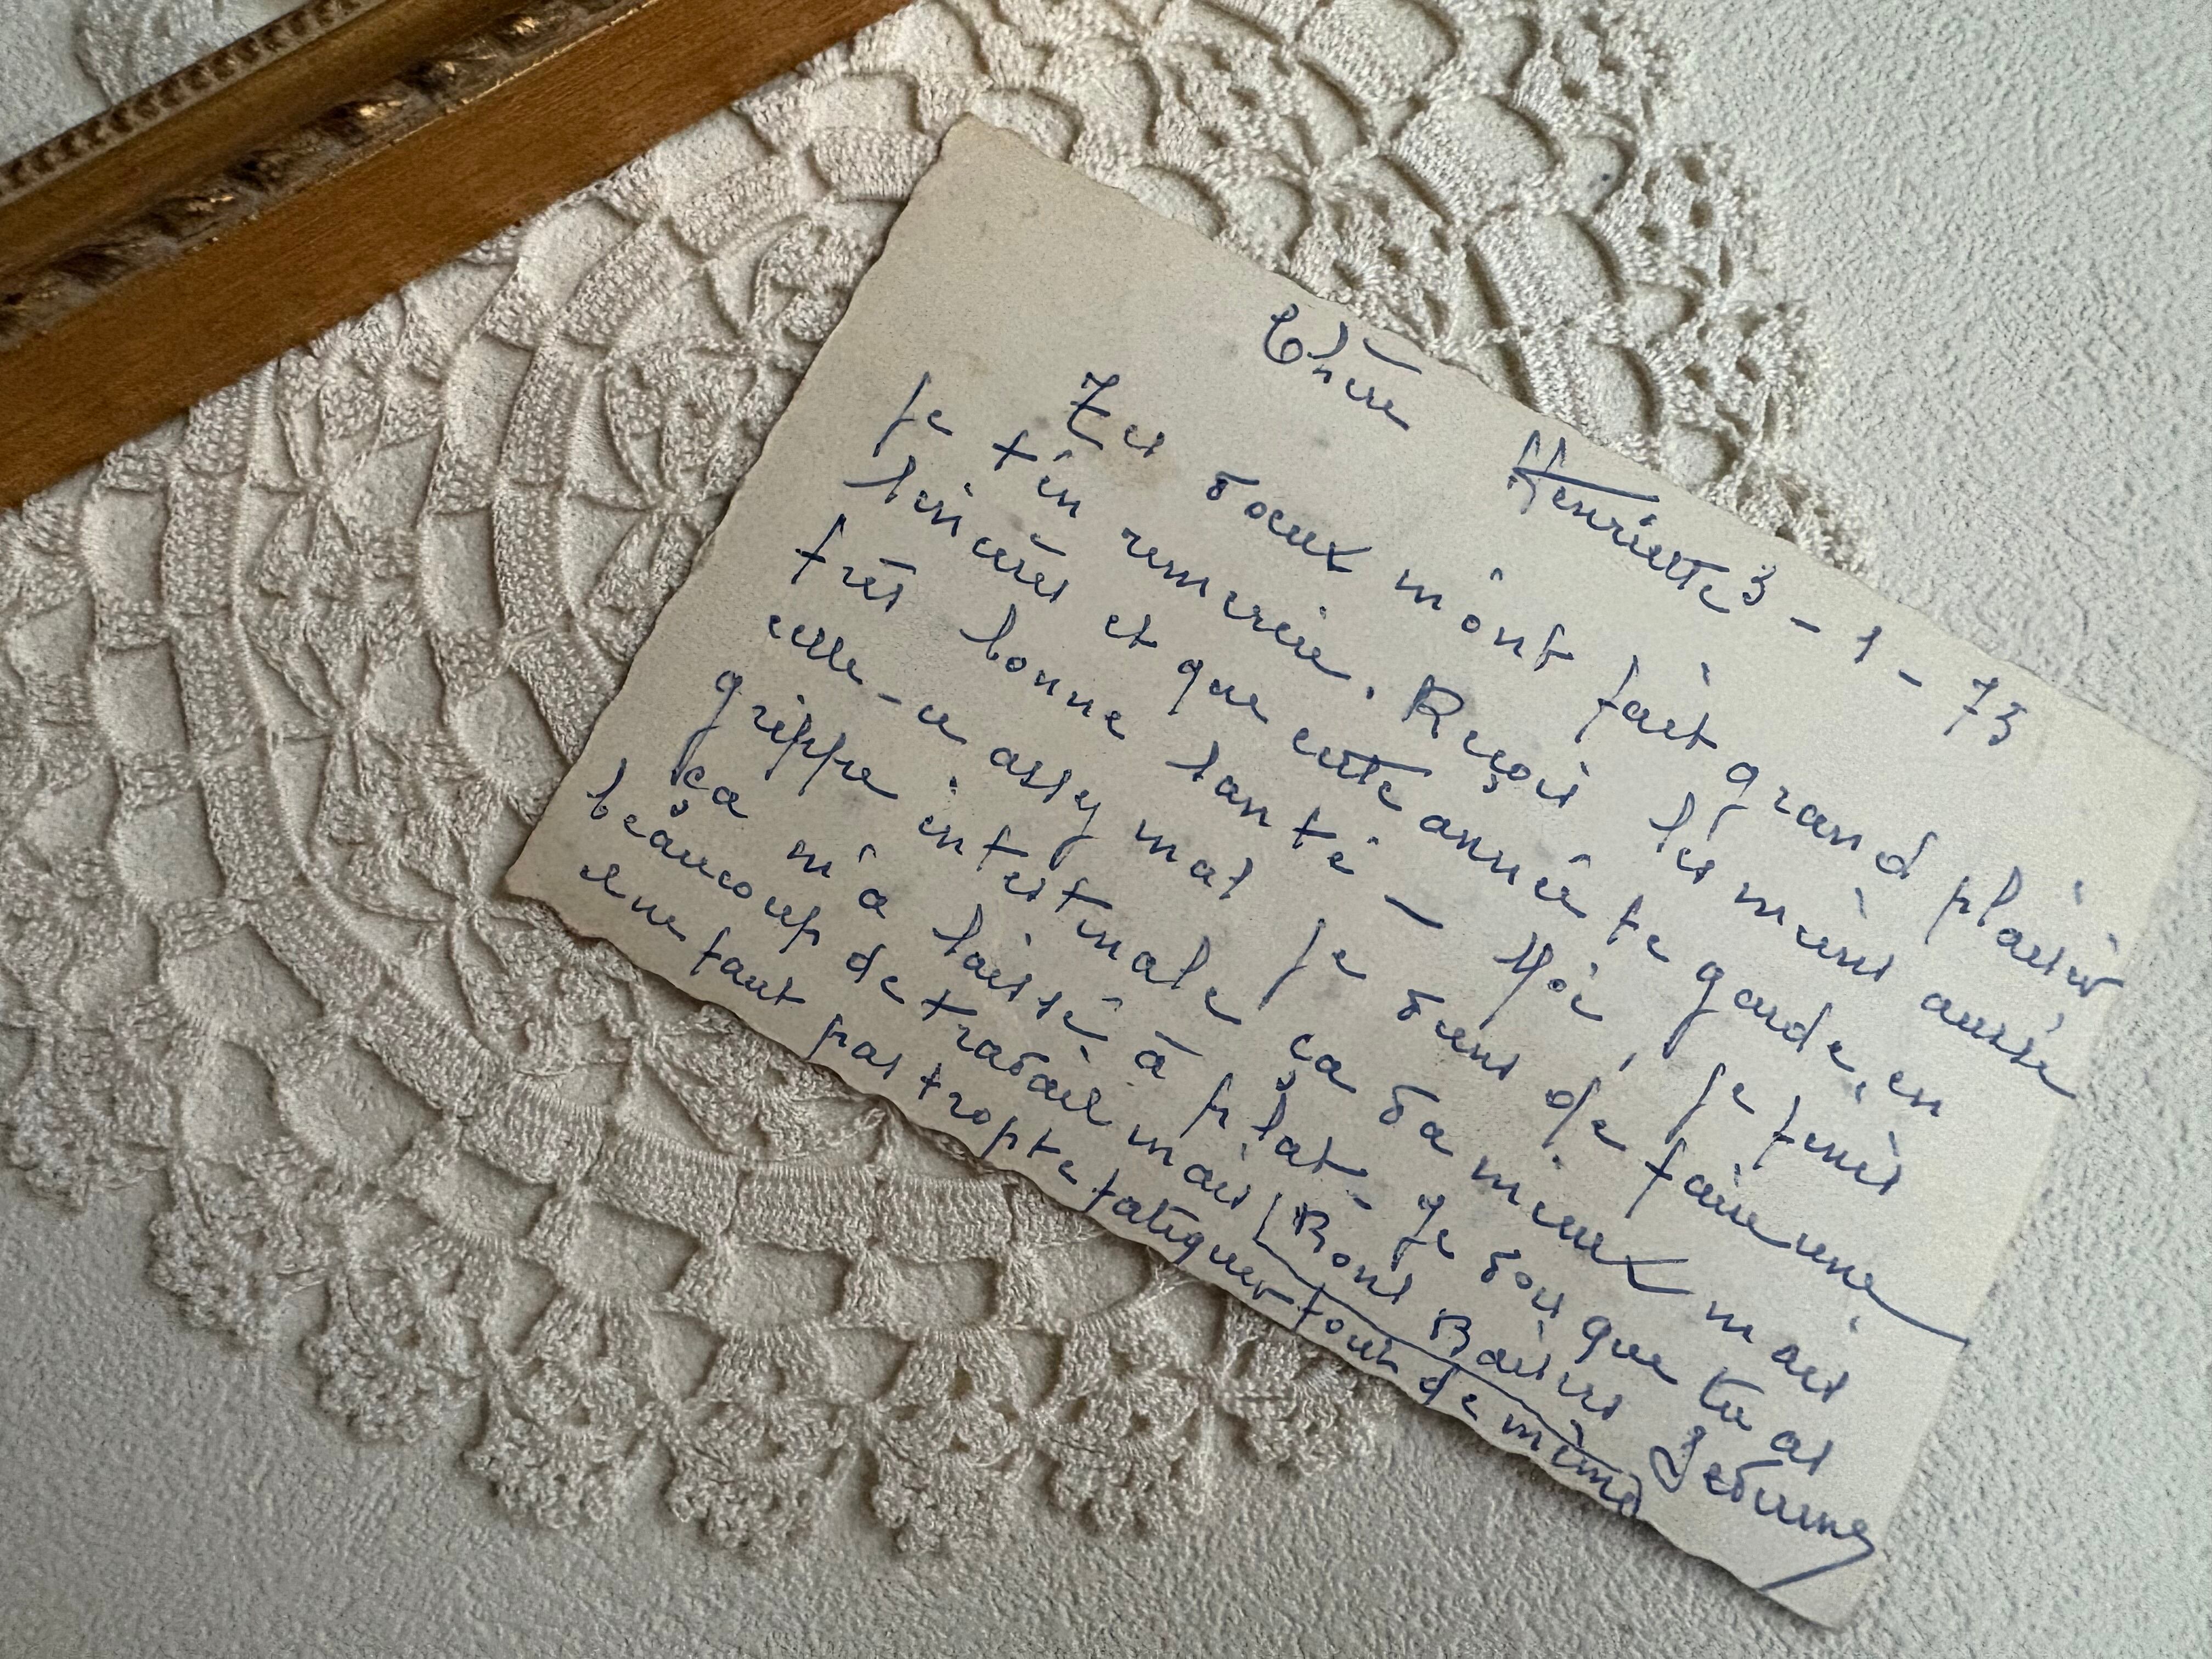 3-1-73
Chère Henriette
Tes voeux m'ont fait grand plaisir
je t'en remercie. Reçois les miens aussi
sincères et que cette année te garde, en
très bonne santé - Moi, je finis
celle-ci assez mal je viens de faire une
grippe intestinale ça va mieux mais
ça m'a laissé à plat - Je vois que tu as
beaucoup de travail mais Bons Baisers
il ne faut pas trop te fatiguer tout de même